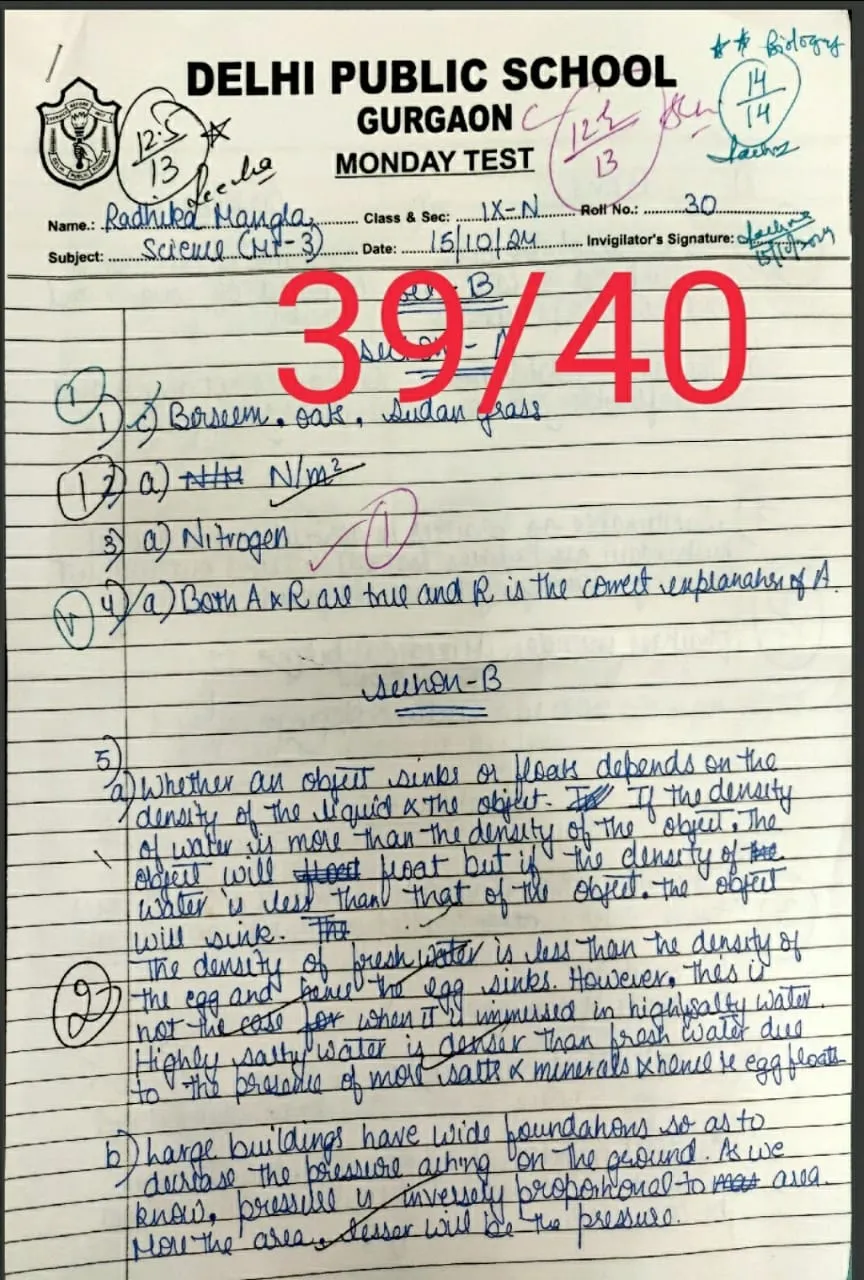 ** Biology
14/14
DELHI PUBLIC SCHOOL
GURGAON
12.5/13
12.5/13
MONDAY TEST
Name.: Radhika Mangla Class & Sec: IX-N Roll No.: 30
Subject: Science (MT-3) Date: 15/10/24 Invigilator's Signature:
15/10/2024
39/40
Sec-B
Section - A
1
1) c) Berseem, oats, Sudan grass
1 2) a) N/m²
3) a) Nitrogen 1
1 4) a) Both A & R are true and R is the correct explanation of A.
Section-B
5)
a) Whether an object sinks or floats depends on the
density of the liquid & the object. If the density
of water is more than the density of the object, the
object will float but if the density of the
water is less than that of the object, the object
will sink. The
The density of fresh water is less than the density of
the egg and hence the egg sinks. However, this is
2
not the case for when it is immersed in highly salty water.
Highly salty water is denser than fresh water due
to the presence of more salts & minerals & hence egg floats
b) Large buildings have wide foundations so as to
decrease the pressure acting on the ground. As we
know, pressure is inversely proportional to area.
More the area, lesser will be the pressure.